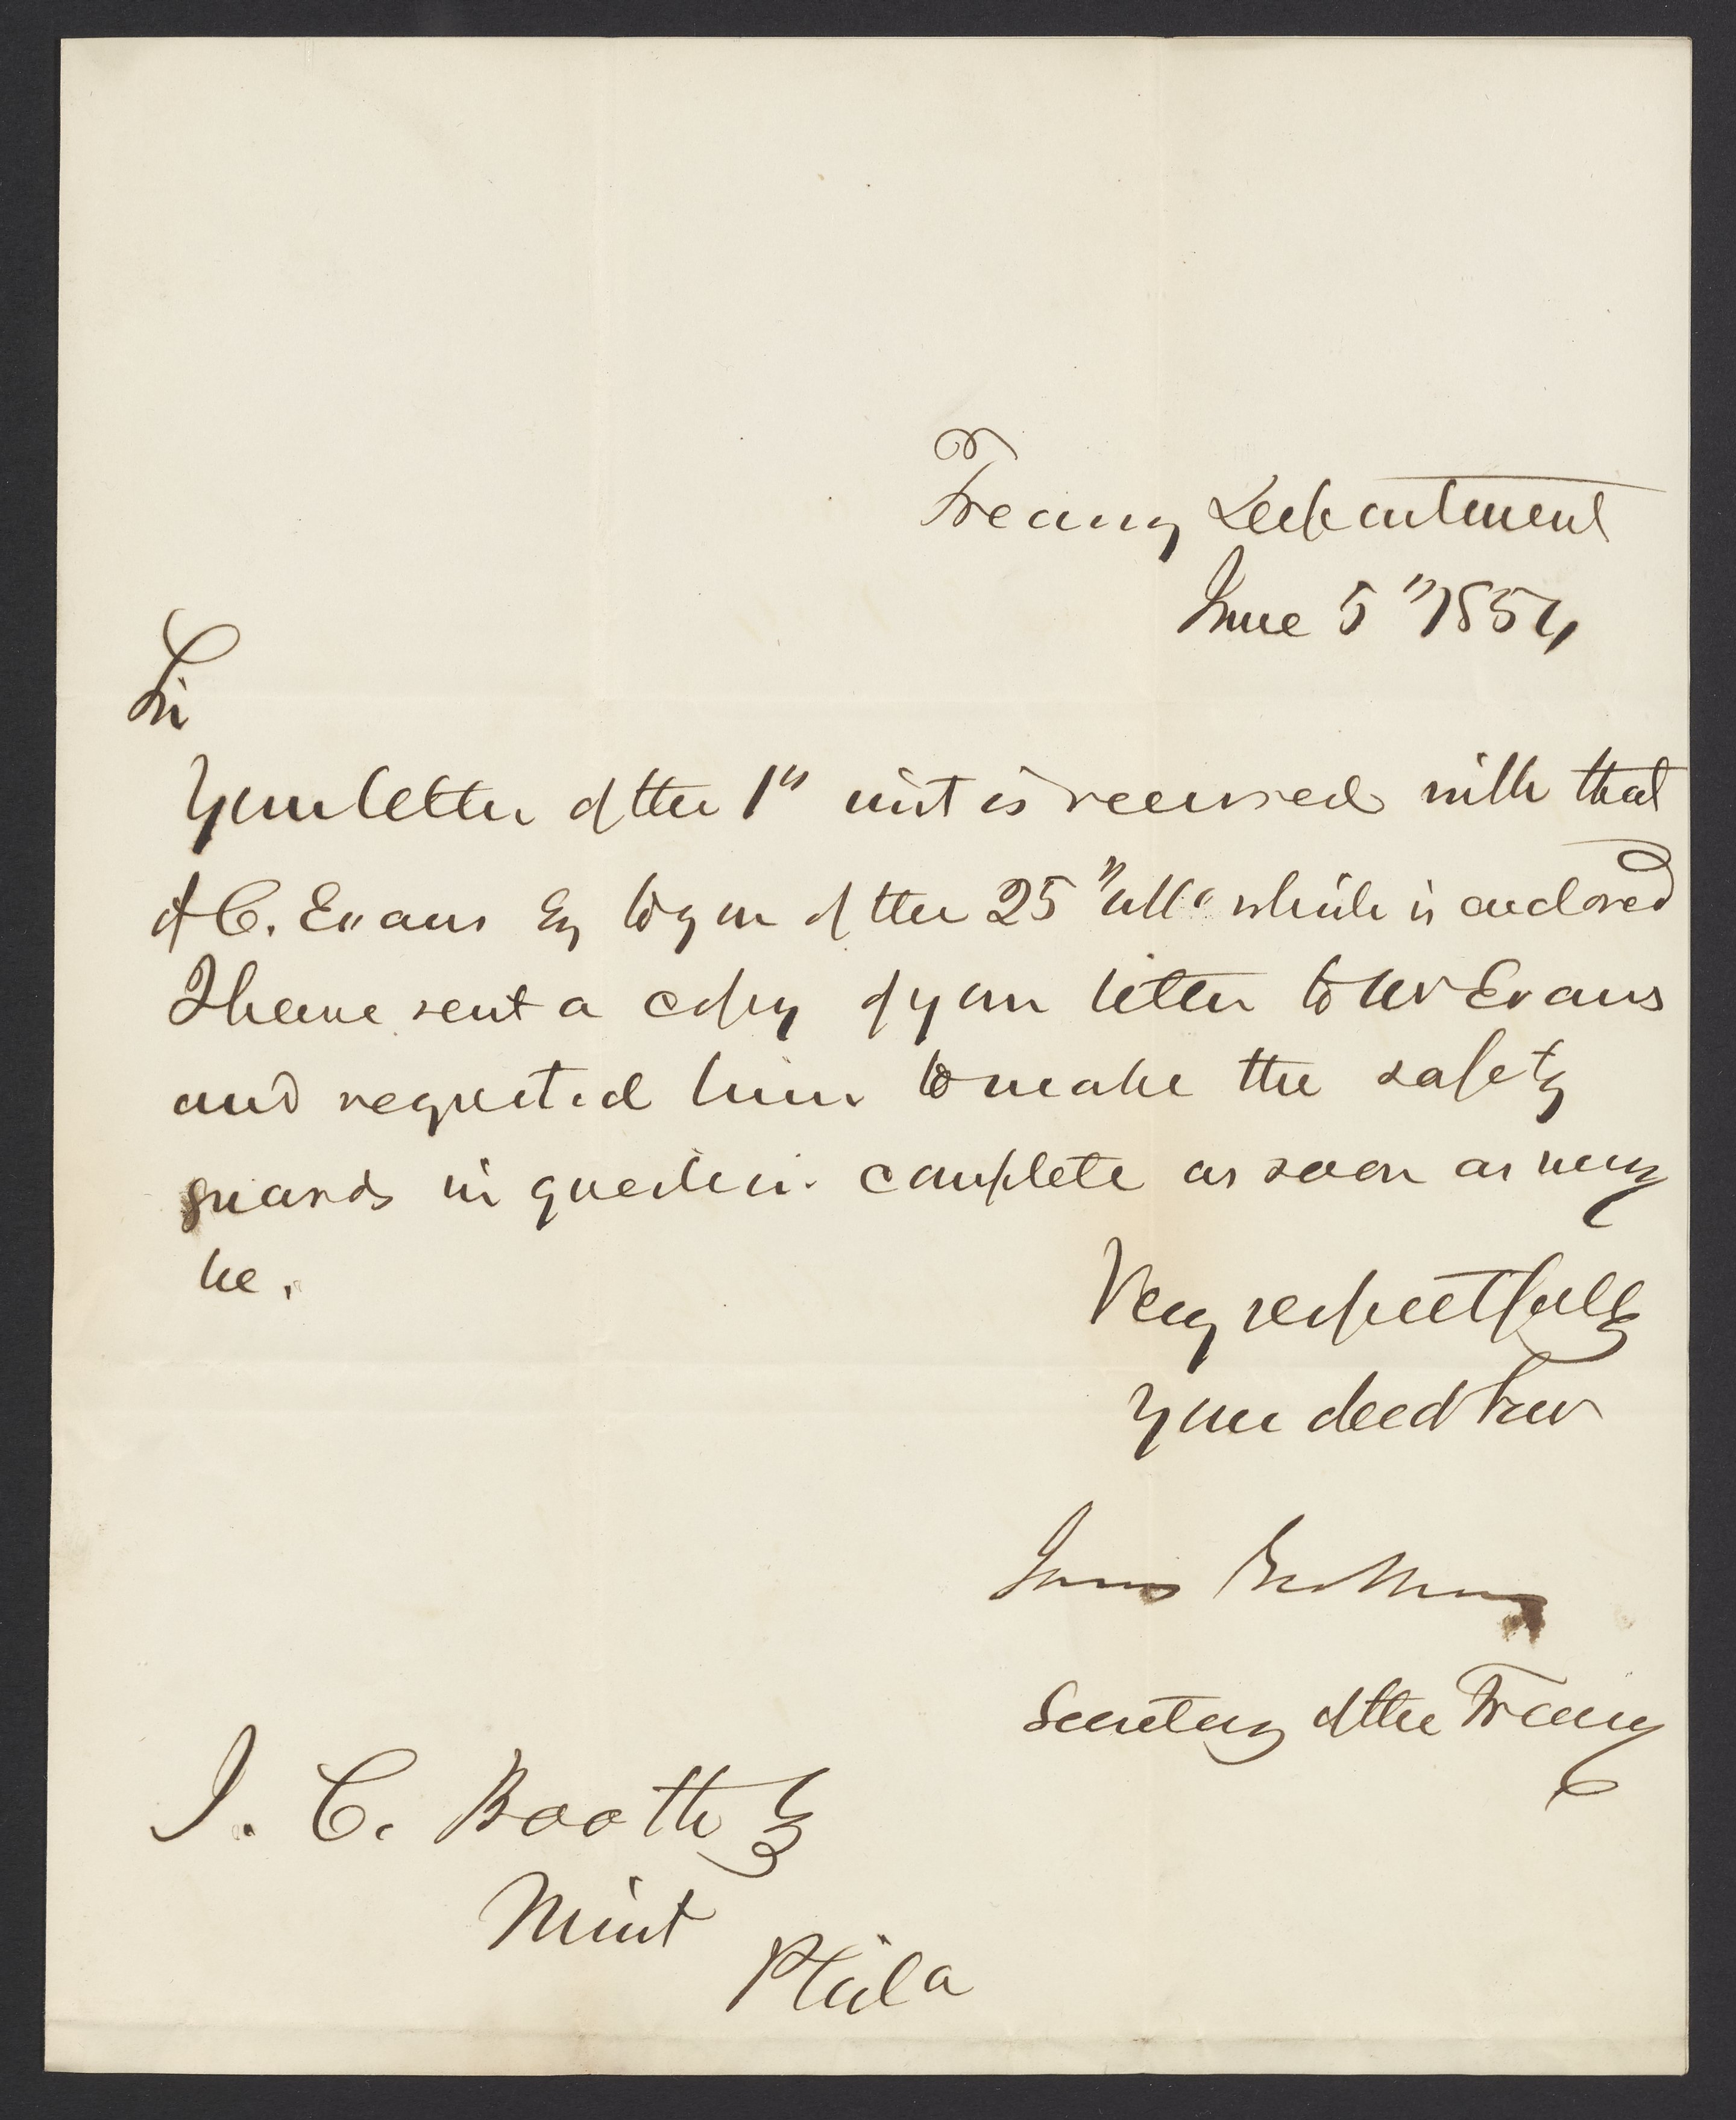 Treasury Department
June 5" 1854
Sir
Your letter of the 1st inst is received with that
of C. Evans Esq to you of the 25" ulto which is enclosed
I have sent a copy of your letter to Mr Evans
and requested him to make the safety
guards in question complete as soon as may
be.
Very respectfully
Your obed Serv
James Guthrie
Secretary of the Treasury
J. C. Booth Esq
Mint
Phila